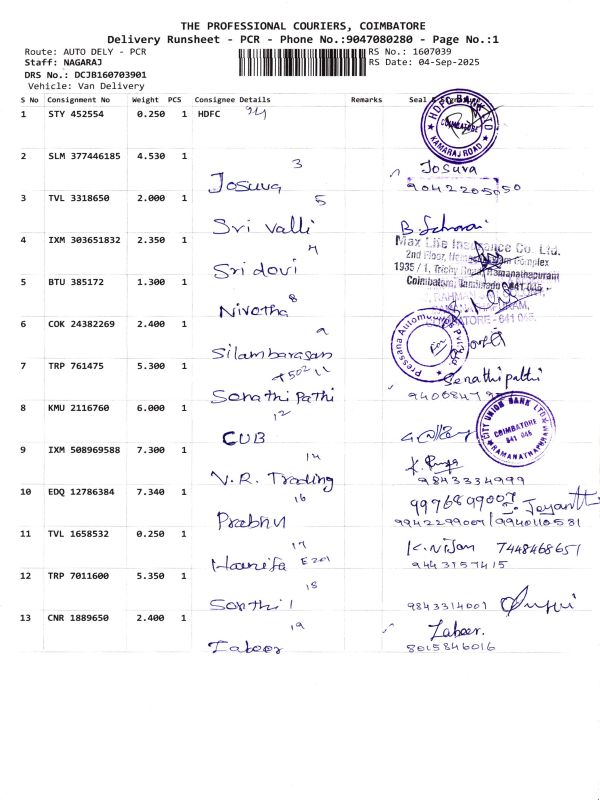 THE PROFESSIONAL COURIERS, COIMBATORE
Delivery Runsheet - PCR - Phone No.:9047080280 - Page No.:1
Route: AUTO DELY - PCR RS No.: 1607039
Staff: NAGARAJ RS Date: 04-Sep-2025
DRS No.: DCJB160703901
Vehicle: Van Delivery
S No Consignment No Weight PCS Consignee Details Remarks Seal &
1 STY 452554 0.250 1 HDFC
HDFC BANK LTD
COIMBATORE
KAMARAJ ROAD
2 SLM 377446185 4.530 1 3 Josuva
Josuva 9042205050
3 TVL 3318650 2.000 1 5
Sri Valli
4 IXM 303651832 2.350 1 7
Max Life Insurance Co. Ltd.
2nd Floor, Complex
1935 / 1, Trichy Road, Ramanathapuram
Coimbatore, Tamilnadu - 641 045.
Sri dovi
5 BTU 385172 1.300 1 8
Nivotha
COIMBATORE - 641 045.
6 COK 24382269 2.400 1 9
Pressana Automobiles Pvt Ltd
Silambarasan
7 TRP 761475 5.300 1 11 Senathipathi
Sonathi Pathi
8 KMU 2116760 6.000 1 12
CITY UNION BANK LTD
COIMBATORE
641 045
RAMANATHAPURAM
CUB
9 IXM 508969588 7.300 1 14
V.R. Trading 9843334999
10 EDQ 12786384 7.340 1 16 9976899007
Prabhu 9942299007/9940110531
11 TVL 1658532 0.250 1 17 K. Nijam 7448468651
Hanifa E201 9443157415
12 TRP 7011600 5.350 1 18
Sonthil 9843314001
13 CNR 1889650 2.400 1 19 Zabeer.
Zabeer 8015846016